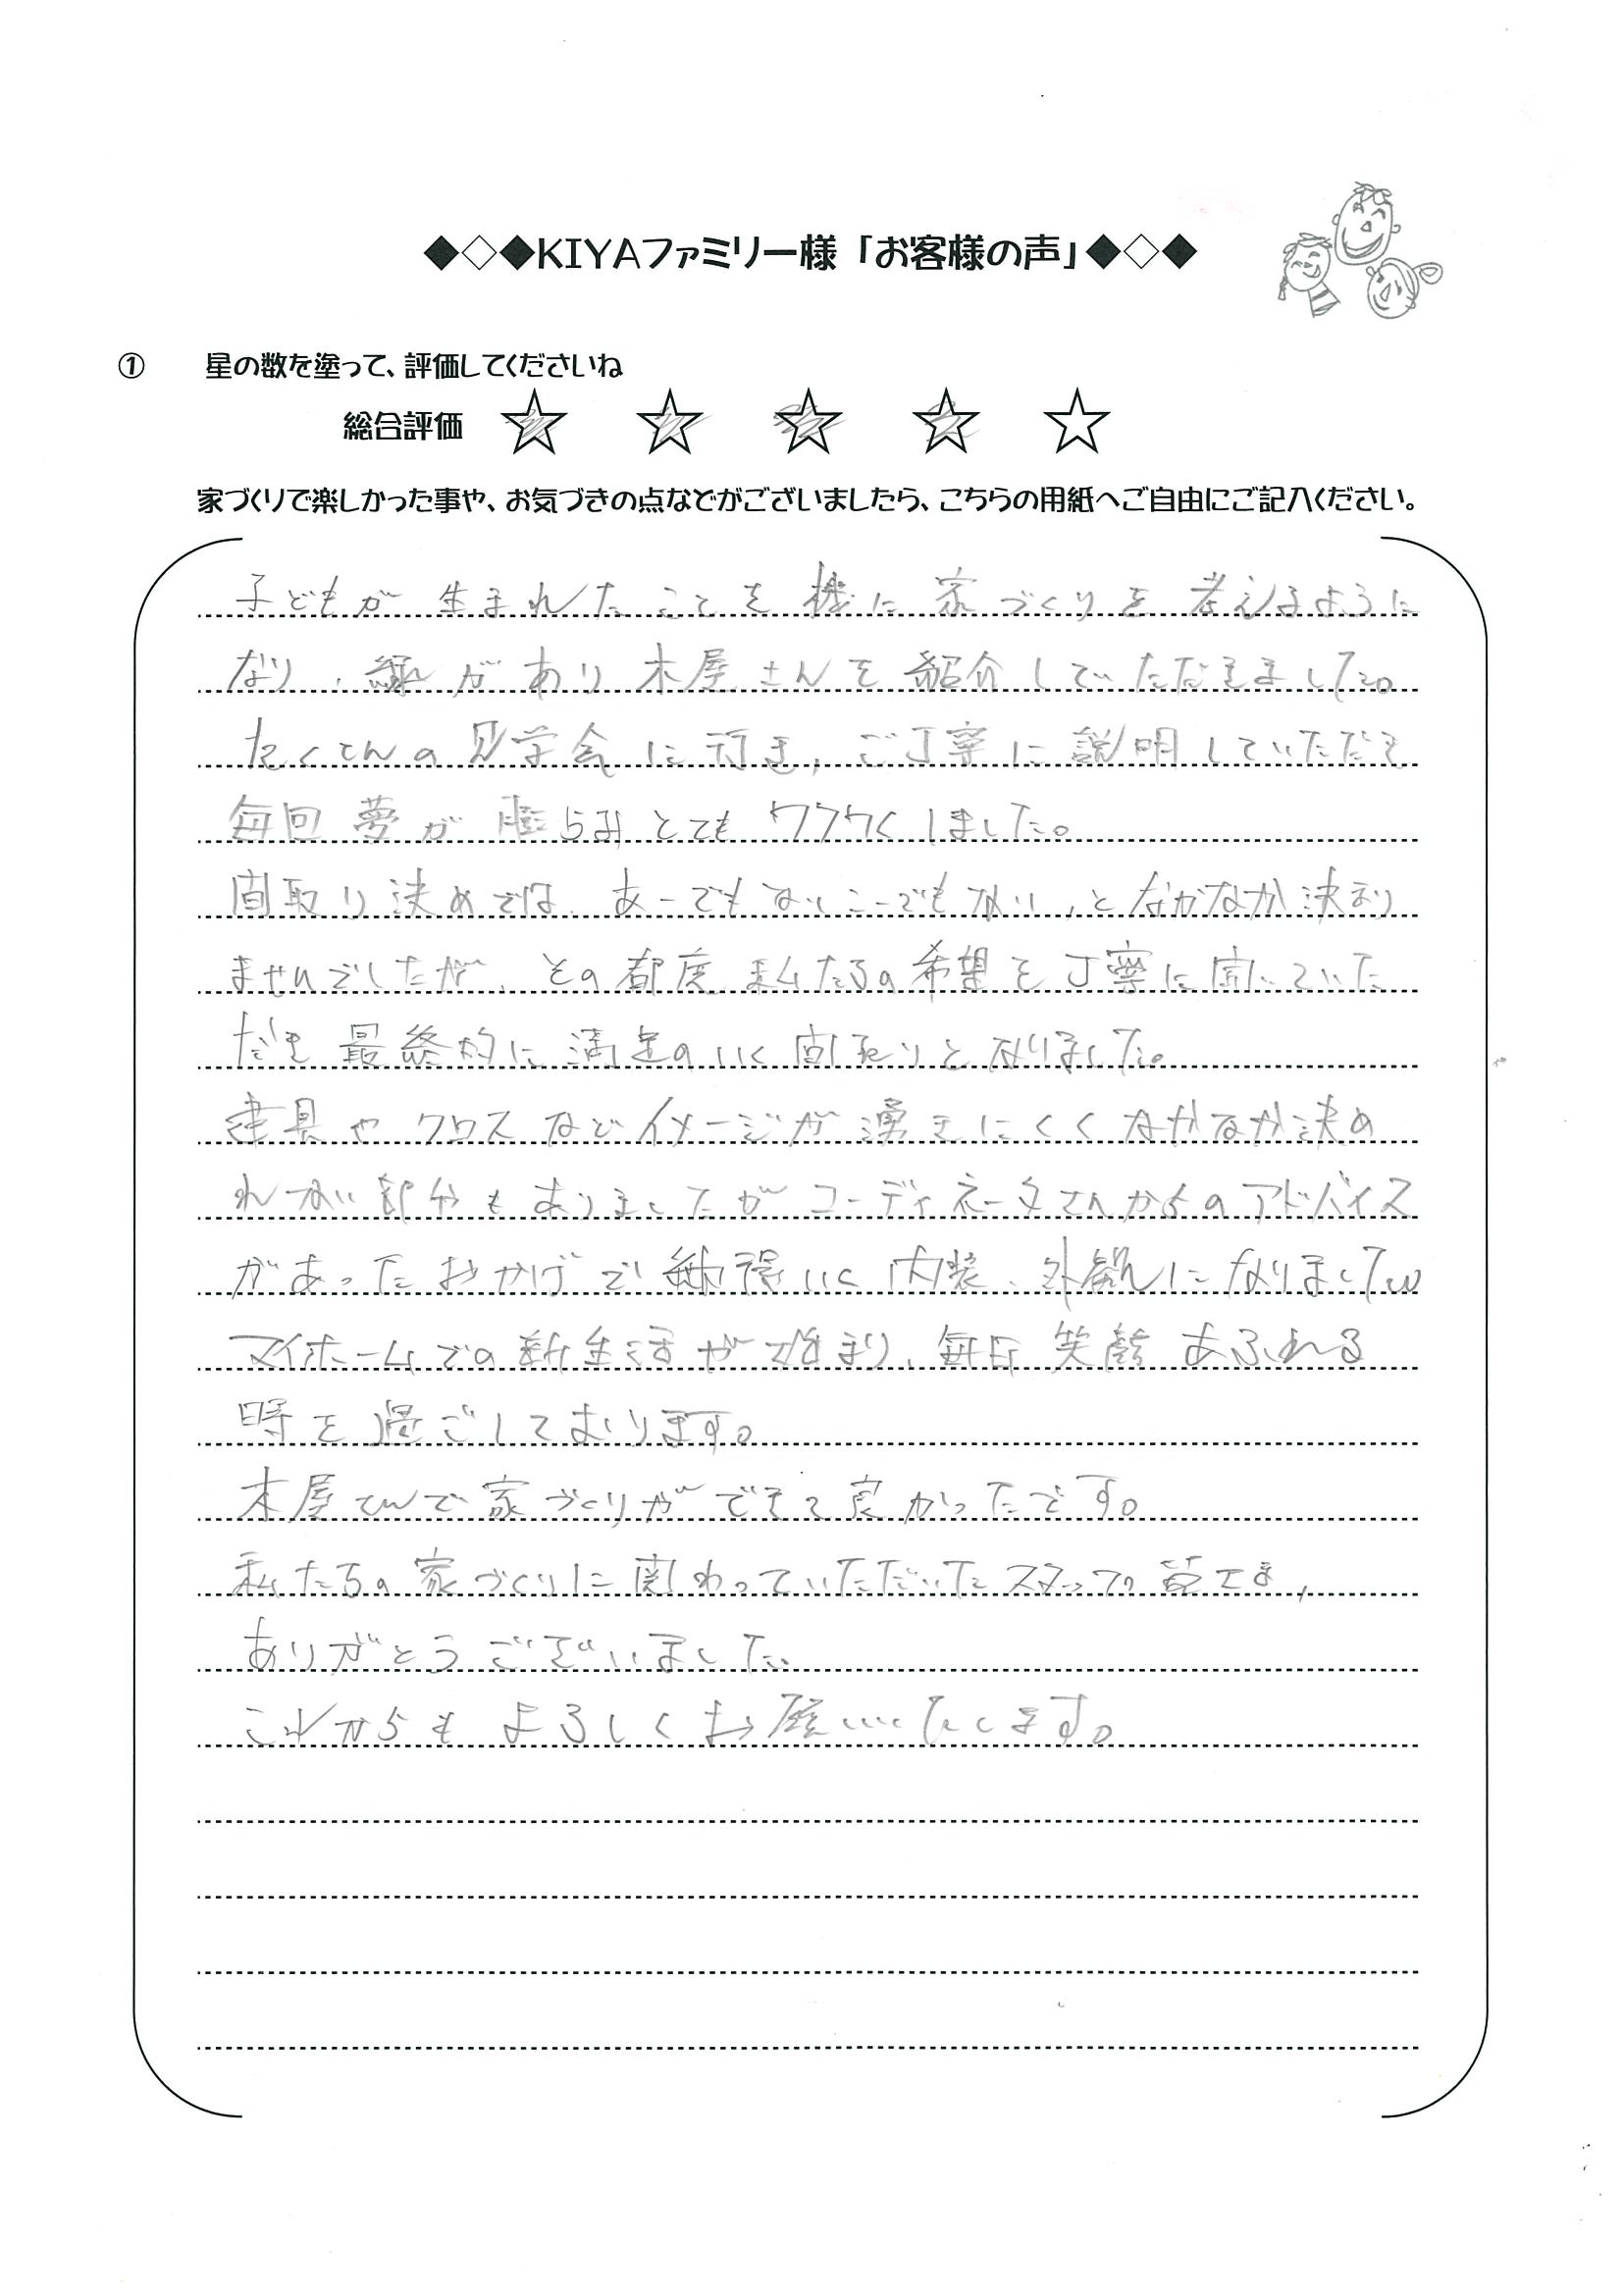 ◆◇◆KIYAファミリー様「お客様の声」◆◇◆
① 星の数を塗って、評価してくださいね
総合評価 ☆ ☆ ☆ ☆ ☆
家づくりで楽しかった事や、お気づきの点などがございましたら、こちらの用紙へご自由にご記入ください。
子どもが生まれたことを機に家づくりを考えるように
なり、縁があり木屋さんを紹介していただきました。
たくさんの見学会に行き、ご丁寧に説明していただき
毎回夢が膨らみとてもワクワクしました。
間取り決めでは、あーでもないこーでもない、となかなか決まり
ませんでしたが、その都度私たちの希望を丁寧に聞いていた
だき最終的に満足のいく間取りとなりました。
建具やクロスなどイメージが湧きにくくなかなか決め
れない部分もありましたがコーディネータさんからのアドバイス
があったおかげで納得いく内装、外観になりました。
マイホームでの新生活が始まり、毎日笑顔あふれる
時を過ごしております。
木屋さんで家づくりができて良かったです。
私たちの家づくりに関わっていただいたスタッフの皆さま、
ありがとうございました。
これからもよろしくお願いいたします。